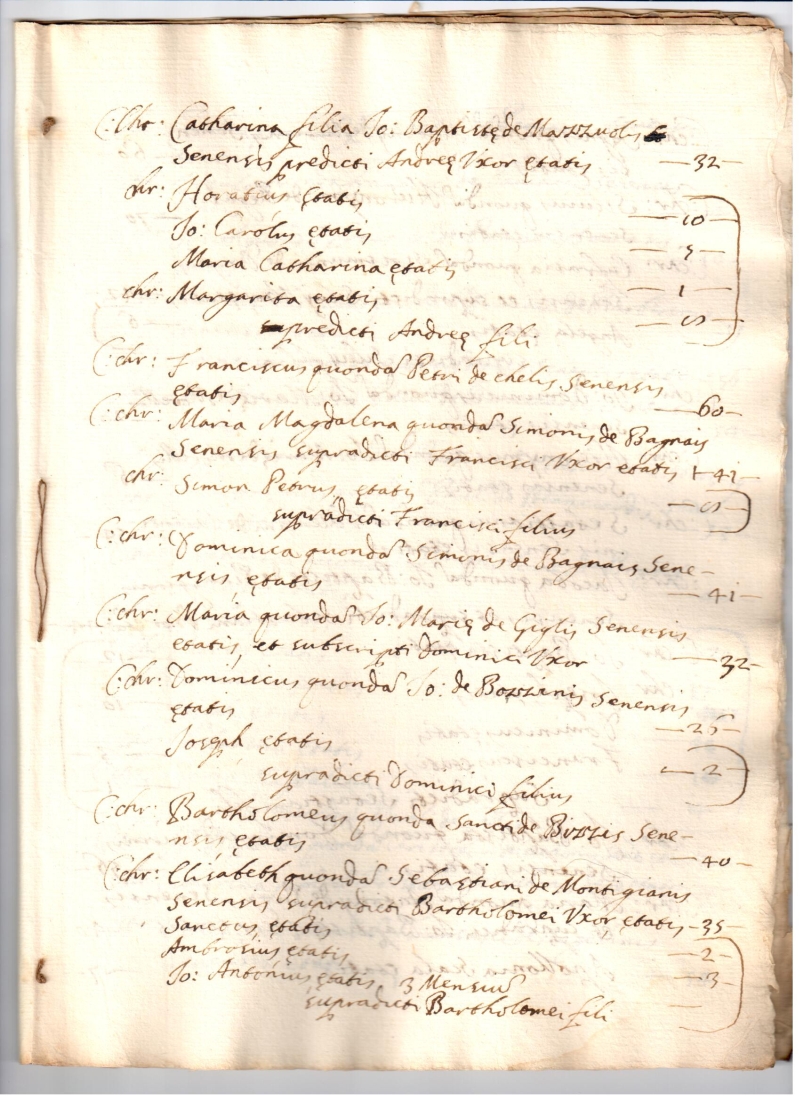 C: Chr: Catharina filia Jo: Baptistę de Mazzuolis
Senensis predicti Andreę Uxor ętatis —32—
chr: Horatius ętatis —10—
Jo: Carolus ętatis —5—
Maria Catharina ętatis —1—
chr: Margarita ętatis
predicti Andreę fili
C: chr: Franciscus quondã Petri de chelis Senensis
ętatis —60—
C: chr: Maria Magdalena quondã Simonis de Bagnais
Senensis supradicti Francisci Uxor etatis 41—
chr: Simon Petrus ętatis
supradicti Francisci filius
C: chr: Dominica quondã Simonis de Bagnais Sene-
nsis ętatis —41—
C: chr: Maria quondã Jo: Marię de Giglis Senensis
etatis et subscripti Dominici Uxor —32—
C: chr: Dominicus quondã Jo: de Bozzinis Senensis
ętatis
Joseph ętatis —2—
supradicti Dominici filius
C: chr: Bartholomeus quonda Sancti de Bizzis Sene-
nsis ętatis —40—
C: chr: Elisabeth quondã Sebastiani de Montigianis
Senensis supradicti Bartholomei Uxor ętatis —35—
Sanctus ętatis —2—
Ambrosius ętatis —3—
Jo: Antonius ętatis 3 Mensiũ —
supradicti Bartholomei fili